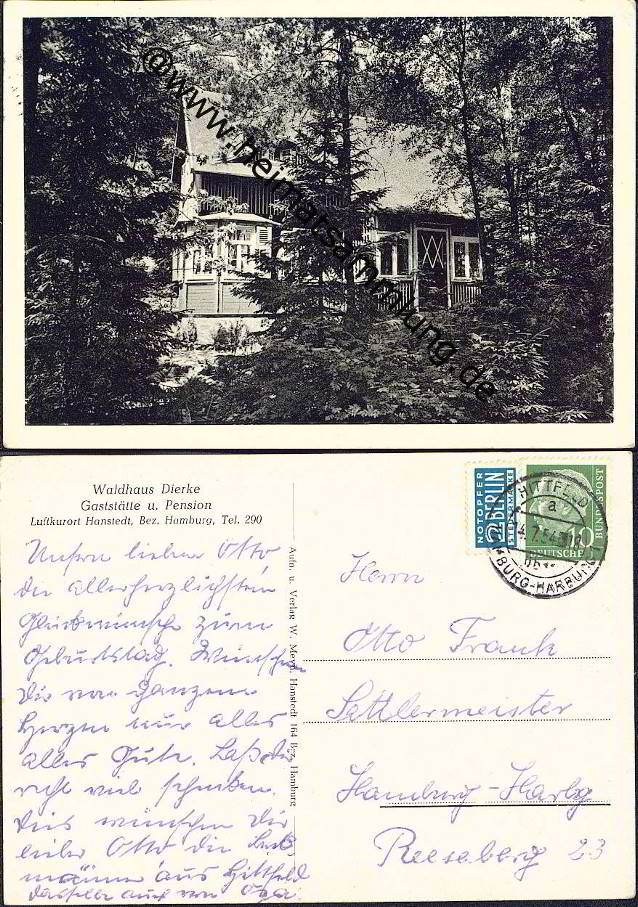 @www.heimatsammlung.de
Waldhaus Dierke
Gaststätte u. Pension
Luftkurort Hanstedt, Bez. Hamburg, Tel. 290
Unsern lieben Otto
die allerherzlichsten
Glückwünsche zum
Geburtstag. Wünschen
Dir von ganzem
Herzen nur alles
alles Gute. Laß dir
recht viel schenken.
Dies wünschen Dir
lieber Otto die
aus Hittfeld
dasselbe auch von Opa.
Aufn. u. Verlag W. Meyn, Hanstedt 164 Bez. Hamburg
NOTOPFER
2 BERLIN
STEUERMARKE
HITTFELD
a
HAMBURG-HARBURG
10
DEUTSCHE
BUNDESPOST
Herrn
Otto Frank
Sattlermeister
Hamburg-Harbg
Reeseberg 23